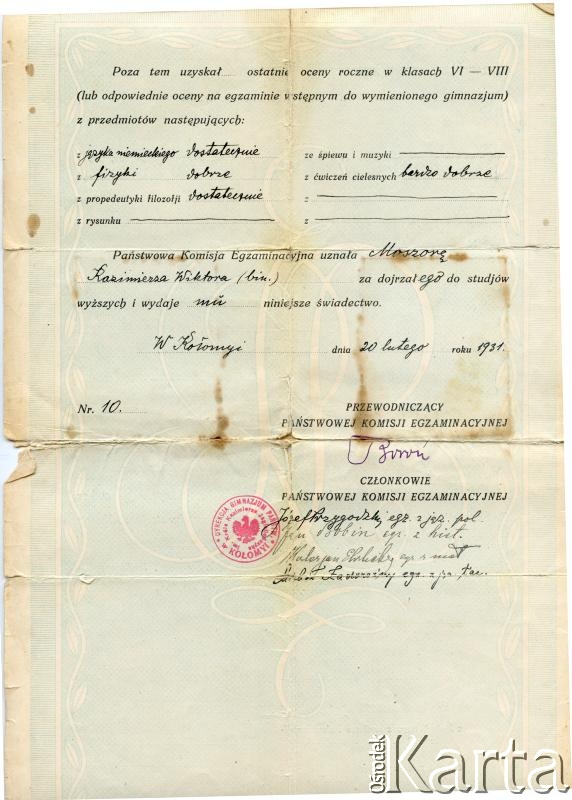 Poza tem uzyskał ostatnie oceny roczne w klasach VI — VIII
(lub odpowiednie oceny na egzaminie wstępnym do wymienionego gimnazjum)
z przedmiotów następujących:
z języka niemieckiego dostatecznie
z fizyki dobrze
z propedeutyki filozofji dostatecznie
z rysunku
ze śpiewu i muzyki
z ćwiczeń cielesnych bardzo dobrze
z
z
Państwowa Komisja Egzaminacyjna uznała Moszorę
Kazimierza Wiktora (bin.) za dojrzałego do studjów
wyższych i wydaje mu niniejsze świadectwo.
W Kołomyi dnia 20 lutego roku 1931.
Nr. 10.
PRZEWODNICZĄCY
PAŃSTWOWEJ KOMISJI EGZAMINACYJNEJ
CZŁONKOWIE
PAŃSTWOWEJ KOMISJI EGZAMINACYJNEJ
DYREKCJA GIMNAZJUM PAŃSTW.
im. Króla Kazimierza
W KOŁOMYI
Józef Przygodzki egz. z jęz. pol.
Jan egz. z hist.
egz. z mat
egz. z jęz. łac.
Ośrodek
Karta